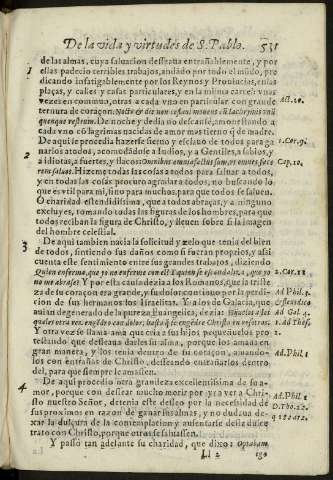 De la vida y virtudes de S. Pablo. 531
de las almas, cuya saluacion desseaua entrañablemente, y por
1 ellas padecio terribles trabajos, andãdo por todo el mũdo, pre
dicando infatigablemente por los Reynos y Prouincias, en las
plaças, y calles y casas particulares, y en la misma carcel: vnas
vezes en comun, otras a cada vno en particular con grande
ternura de coraçon. Nocte & die non cessaui monens cũ lacrymis vnũ Act. 20.
quenque vestrum. De noche y dia no descansè, amonestando a
cada vno cõ lagrimas nacidas de amor mas tierno q̃ de madre.
De aqui le procedia hazerse sieruo y esclauo de todos para ga 1. Cor. 9.
narlos a todos, acomodãdose a Iudios, y a Gentiles, a sabios, y
2 a idiotas, a fuertes, y flacos: Omnibus omnia factus sum, vt omnes face Cap. 10.
rem saluos. Hizeme todas las cosas a todos para saluar a todos,
y en todas las cosas procuro agradar a todos, no buscando lo
que es vtil para mi, sino para muchos, para que todos se saluen.
O charidad estendidissima, que a todos abraças, y a ninguno
excluyes, tomando todas las figuras de los hombres, para que
todos reciban la figura de Christo, y lleuen sobre si la imagen
del hombre celestial.
3 De aqui tambien nacia la solicitud y zelo que tenia del bien
de todos, sintiendo sus daños como si fueran proprios, y assi
cuenta este sentimiento entre sus grandes trabajos, diziendo
Quien enferma, que yo no enferme con el? Y quien se escandaliza, que yo 2. Cor. 11
no me abrase? Y por esta causa dezia a los Romanos, que la triste
za de su coraçon era grande, y su dolor continuo por la perdi-
cion de sus hermanos los Israelitas. Y a los de Galacia, que
auian degenerado de la pureza Euangelica, dezia: Ad Gal. 4.
quales otra vez engẽdro con dolor, hasta q̃ se engẽdre Christo en vosotros. 1. ad Thes.
Y otra vez se llama ama que cria a sus hijos pequeñuelos, pro 2.
testando que desseaua darles su alma, porque los amaua en
gran manera, y los tenia dentro de su coraçon, amando-
los con entrañas de Christo, desseando entrañarlos dentro Ad Phil. 1
del, para que siempre le amassen.
4 De aqui procediò otra grandeza excellentissima de su a-
mor, porque con dessear mucho morir por yr a ver a Chri Ad. Phil. 1
sto nuestro Señor, detenia este desseo por la necessidad de
sus proximos en razon de ganar sus almas, y no dudaua de-
xar la dulçura de la contemplacion y ausentarse della dulce
trato con Christo, porque otros se saluassen.
Y passò tan adelante su charidad, que dixo: Optabam
Ll 2 ego